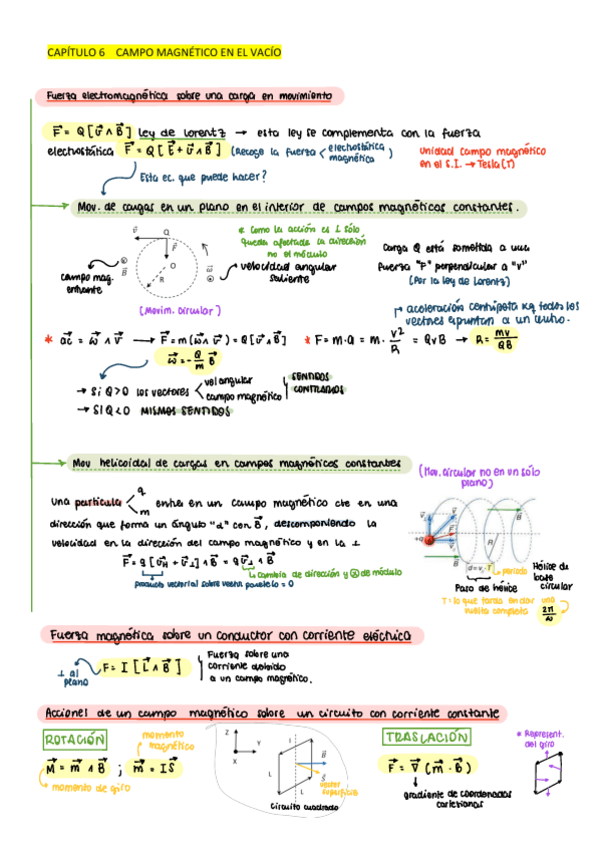 CAPÍTULO 6 CAMPO MAGNÉTICO EN EL VACÍO
Fuerza electromagnética sobre una carga en movimiento
F⃗ = Q [v⃗ ∧ B⃗] Ley de Lorentz → esta ley se complementa con la fuerza
electrostática F⃗ = Q [E⃗ + v⃗ ∧ B⃗] (Recoge la fuerza < electrostática
magnética )
unidad campo magnético
en el S.I. → Tesla (T)
Esta ec. que puede hacer?
Mov. de cargas en un plano en el interior de campos magnéticos constantes.
v⃗ Q
F⃗
O
R
B⃗
ω⃗
campo mag.
entrante
* Como la acción es ⊥ sólo
queda afectada la dirección
no el módulo
velocidad angular
saliente
(Movim. circular)
Carga Q está sometida a una
fuerza "F" perpendicular a "v"
(Por la ley de Lorentz)
aceleración centrípeta xq todos los
vectores apuntan a un centro.
* a⃗c = ω⃗ ∧ v⃗ → F⃗ = m(ω⃗ ∧ v⃗) = Q[v⃗ ∧ B⃗] * F = m·a = m · v²/R = QvB → R = mv/QB
ω⃗ = - Q/m B⃗
→ Si Q>0 los vectores < vel angular
campo magnético
SENTIDOS
CONTRARIOS
→ SI Q<0 MISMOS SENTIDOS
Mov helicoidal de cargas en campos magnéticos constantes
(Mov. circular no en un sólo
plano)
una partícula < q
m entra en un campo magnético cte en una
dirección que forma un ángulo "α" con B⃗, descomponiendo la
velocidad en la dirección del campo magnético y en la ⊥
F⃗ = q [v⃗∥ + v⃗⊥] ∧ B⃗ = q v⃗⊥ ∧ B⃗
cambia de dirección y no de módulo
producto vectorial sobre vector paralelo = 0
+Q
R
d = v · T
periodo
Paso de hélice
Hélice de
base
circular
T: lo que tarda en dar una
vuelta completa 2π/ω
Fuerza magnética sobre un conductor con corriente eléctrica
⊥ al
plano
F = I [L⃗ ∧ B⃗]
Fuerza sobre una
corriente debido
a un campo magnético.
Acciones de un campo magnético sobre un circuito con corriente constante
ROTACIÓN
momento
magnético
M⃗ = m⃗ ∧ B⃗ ; m⃗ = I S⃗
momento de giro
Z
Y
X
I
L
B⃗
L
vector
superficie
Circuito cuadrado
TRASLACIÓN
F⃗ = ∇⃗ (m⃗ · B⃗)
gradiente de coordenadas
cartesianas
* Represent.
del giro